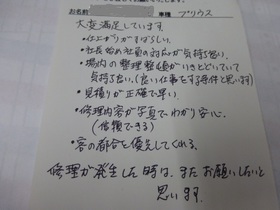 お名前 車種 プリウス
大変満足しています。
・仕上がりがすばらしい。
・社長始め社員の対応が気持ち良い。
・場内の整理整頓がいきとどいていて
気持ち良い。(良い仕事をする条件と思います)
・見積りが正確で早い。
・修理内容が写真でわかり安心。
(信頼できる)
・客の都合を優先してくれる。
修理が発生した時は、またお願いしたいと
思います。